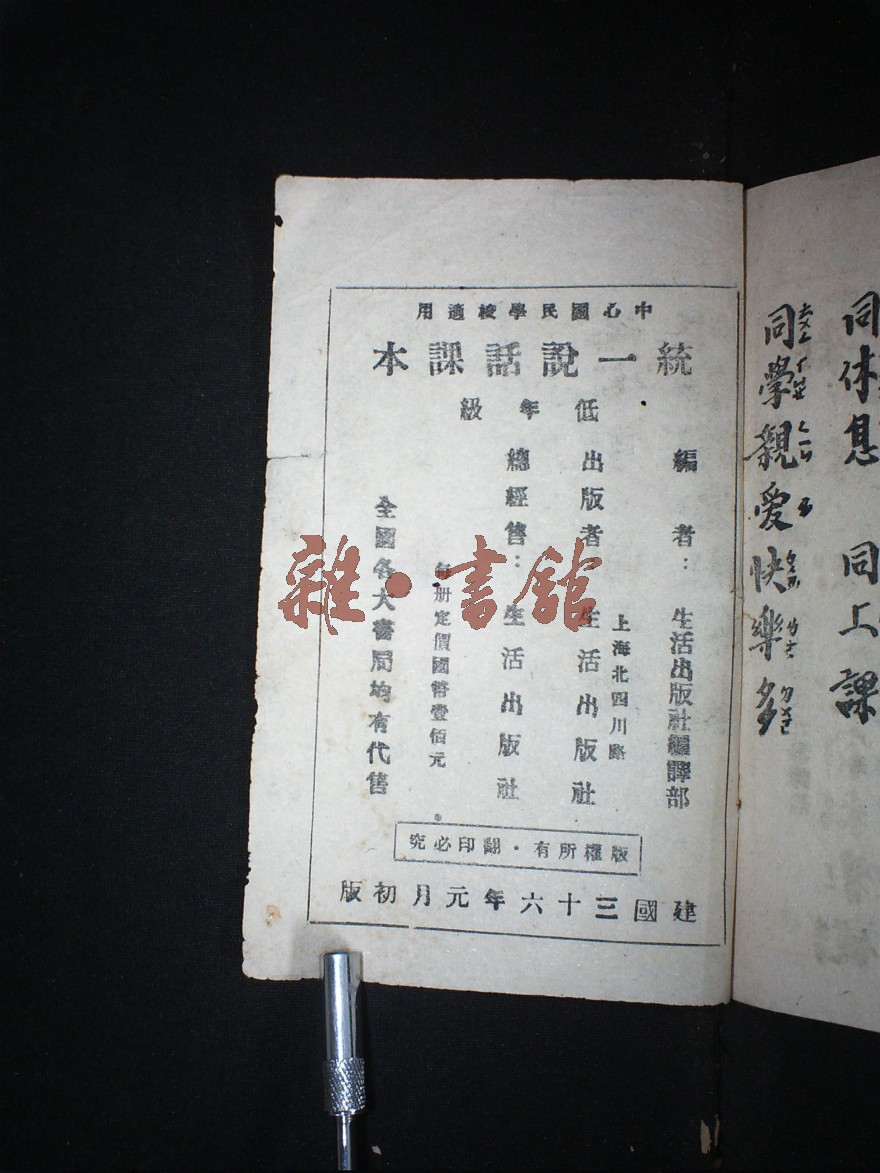 同休息 同上課
同學親愛快樂多
中心國民學校適用
統一說話課本
低年級
編者：生活出版社編譯部
上海北四川路
出版者 生活出版社
總經售：生活出版社
每册定價國幣壹佰元
全國各大書局均有代售
版權所有・翻印必究
建國三十六年元月初版
雜・書館